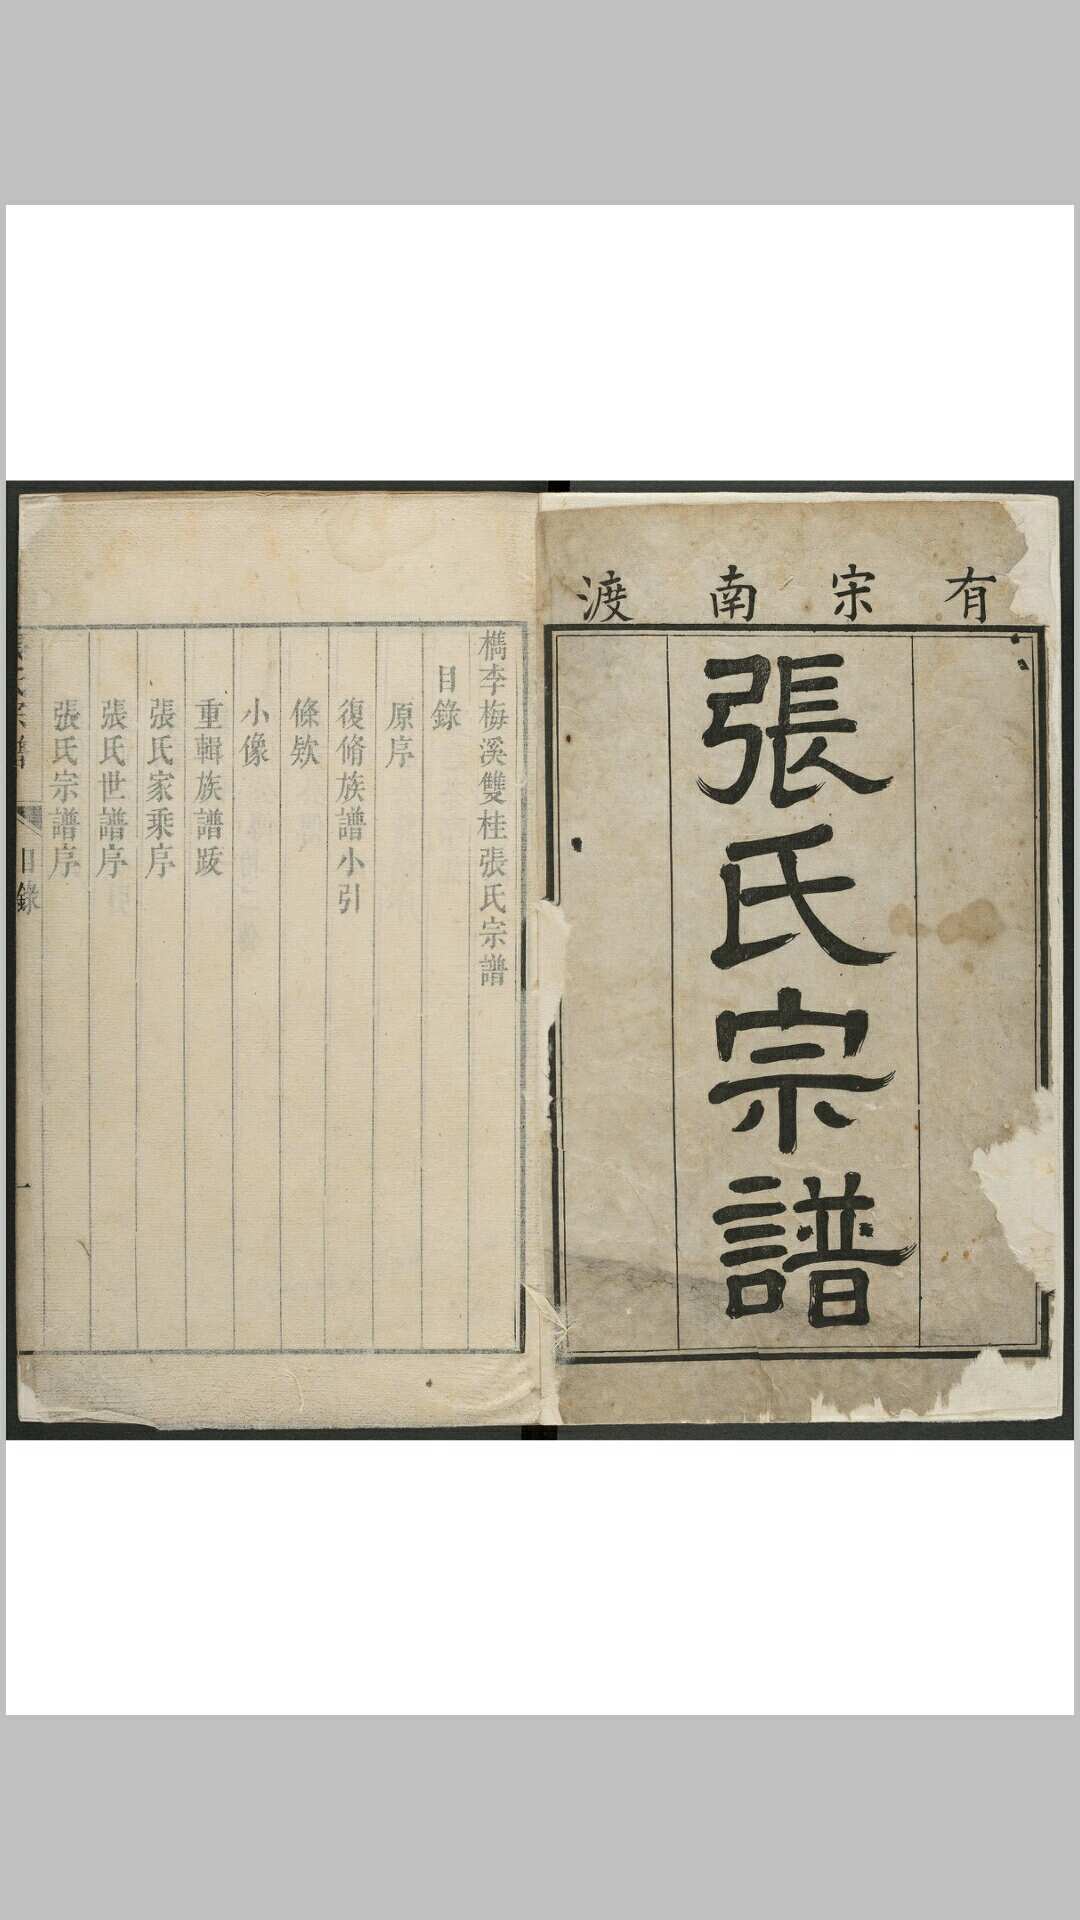 有宋南渡
張氏宗譜
檇李梅溪雙桂張氏宗譜
目錄
原序
復脩族譜小引
條欵
小像
重輯族譜跋
張氏家乘序
張氏世譜序
張氏宗譜序
目錄
一